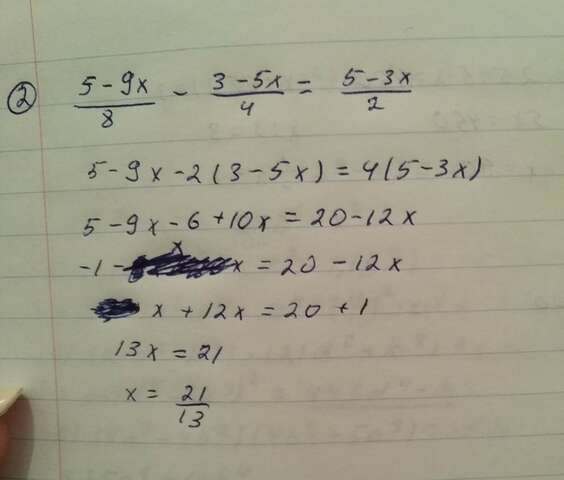 ② (5-9x)/8 - (3-5x)/4 = (5-3x)/2
5-9x-2(3-5x)=4(5-3x)
5-9x-6+10x=20-12x
-1- x x=20-12x
x+12x=20+1
13x=21
x=21/13